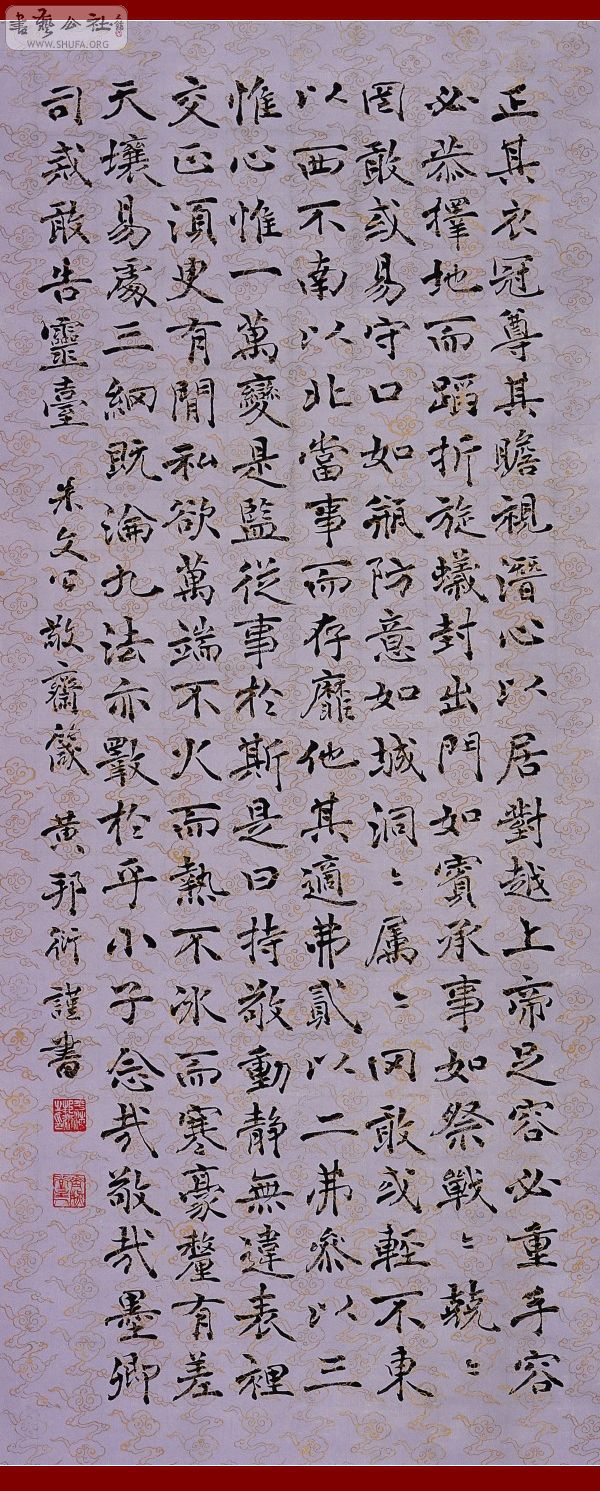 書藝公社
WWW.SHUFA.ORG
正其衣冠尊其瞻視潛心以居對越上帝足容必重手容
必恭擇地而蹈折旋蟻封出門如賓承事如祭戰〻兢〻
罔敢或易守口如瓶防意如城洞〻属〻罔敢或輕不東
以西不南以北當事而存靡他其適弗貳以二弗參以三
惟心惟一萬變是監從事於斯是曰持敬動靜無違表裡
交正須臾有閒私欲萬端不火而熱不冰而寒豪釐有差
天壤易處三綱既淪九法亦斁於乎小子念哉敬哉墨卿
司戒敢告靈臺 朱文公敬齋箴 黃邦衍謹書